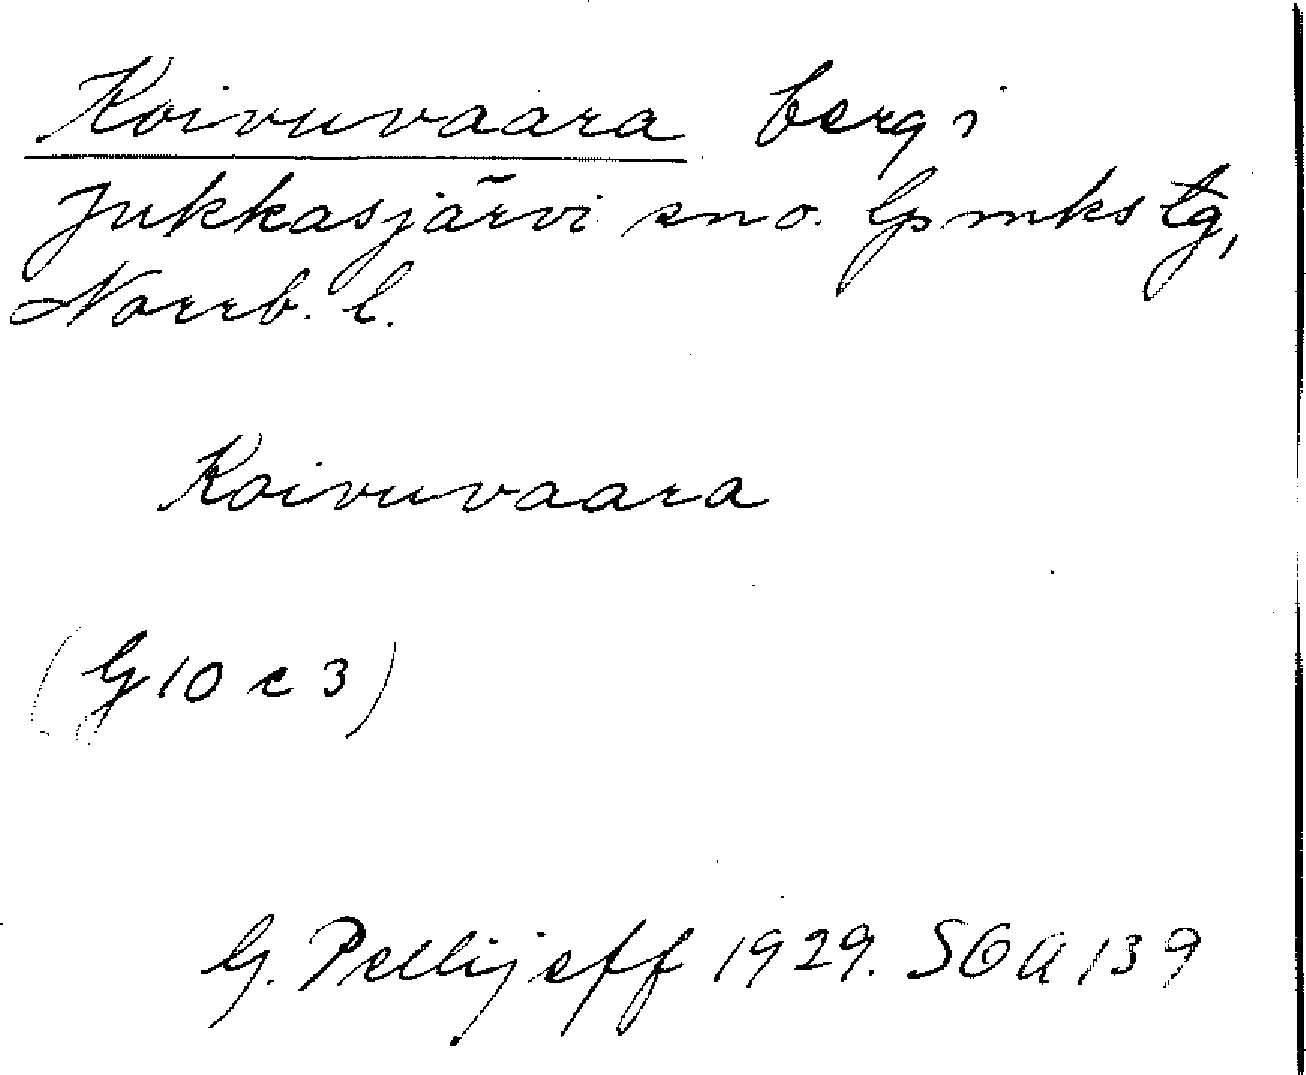 Koivuvaara berg i
Jukkasjärvi sn o. Lpmkstg,
Norrb. l.
Koivuvaara
(G 10 c 3)
G. Pellijeff 1929. SOA 139